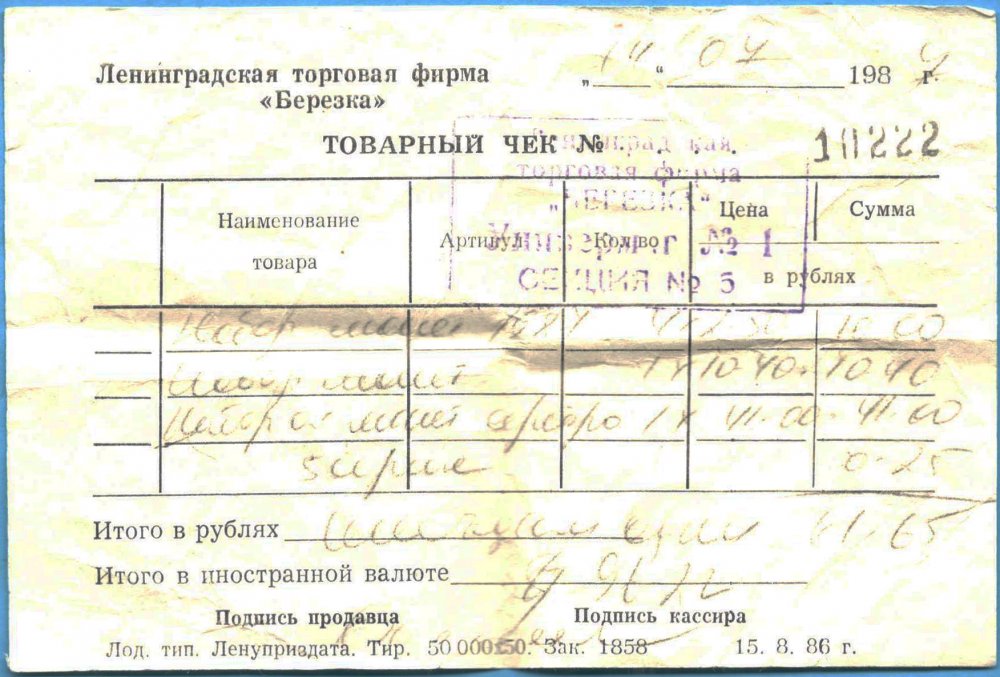 „ “ 07 198 г.
Ленинградская торговая фирма
«Березка»
ТОВАРНЫЙ ЧЕК № . . . 10222
Ленинградская
торговая фирма
„БЕРЕЗКА“
Универмаг № 1
СЕКЦИЯ № 5
Наименование товара Артикул Кол-во Цена Сумма
в рублях
Набор монет
Набор монет 1х 10-40 10-40
Набор монет серебро 1х 41-00 41-00
0-25
Итого в рублях 61-65
Итого в иностранной валюте
Подпись продавца Подпись кассира
Лод. тип. Ленуприздата. Тир. 50 000×50. Зак. 1858 15. 8. 86 г.